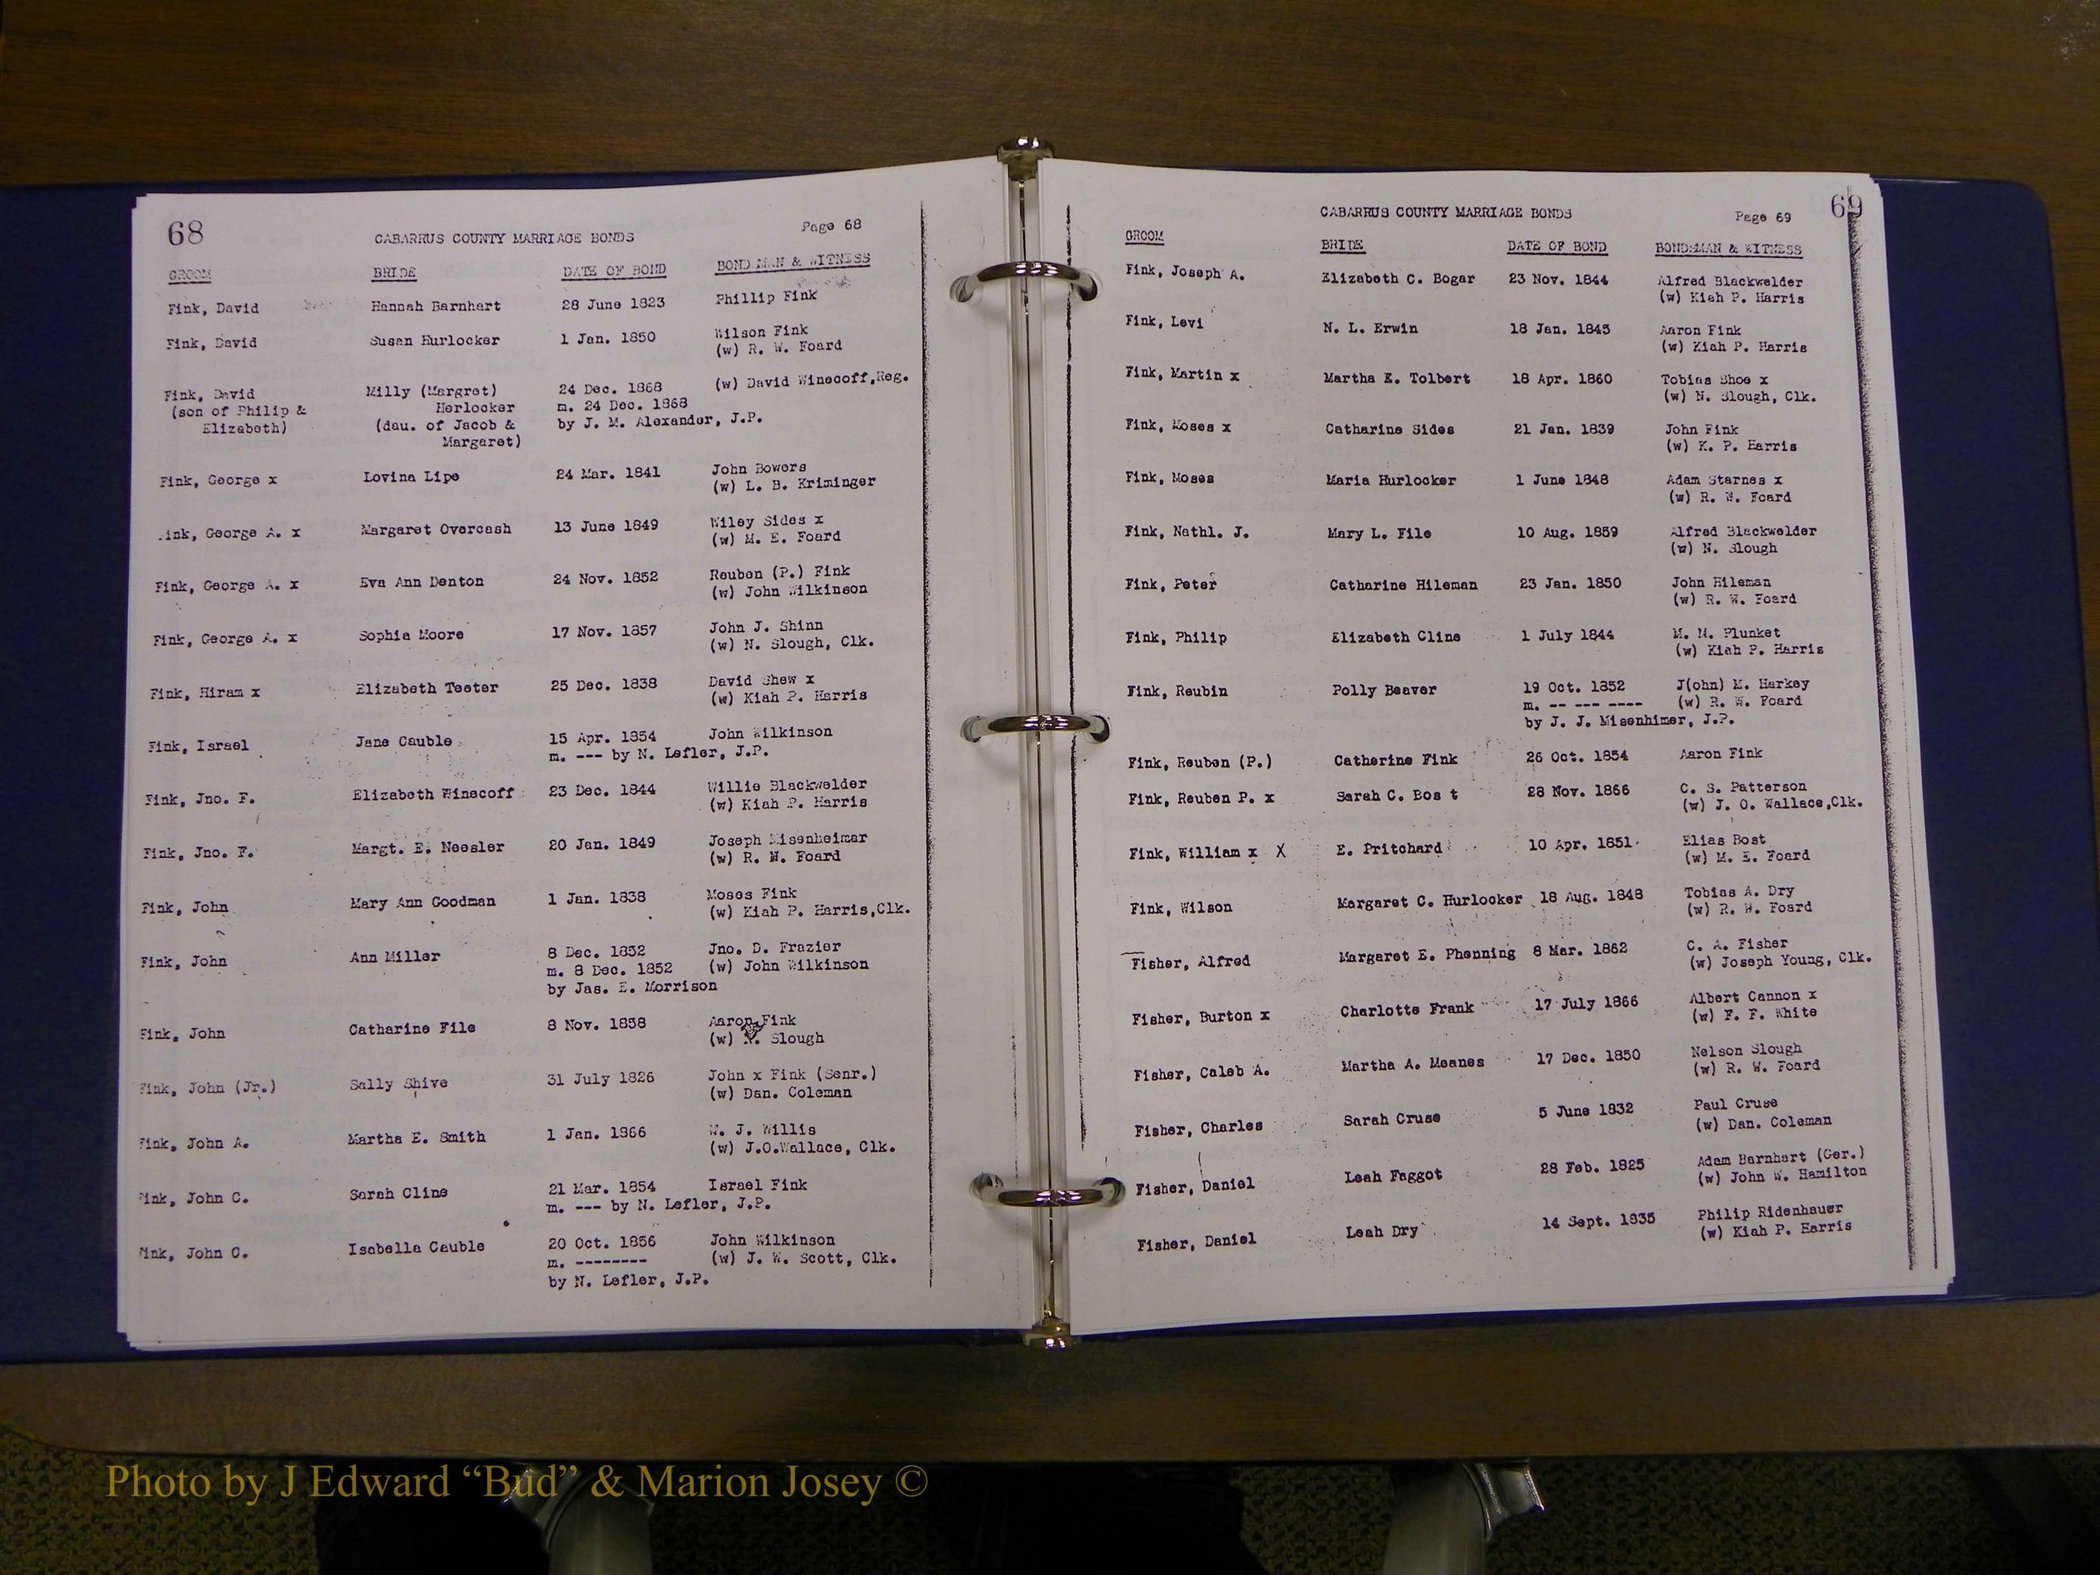 68
CABARRUS COUNTY MARRIAGE BONDS Page 68
GROOM BRIDE DATE OF BOND BONDSMAN & WITNESS
Fink, David Hannah Barnhart 28 June 1823 Phillip Fink
Fink, David Susan Hurlocker 1 Jan. 1850 Wilson Fink
(w) R. W. Foard
Fink, David Milly (Margret) 24 Dec. 1868 (w) David Winecoff,Reg.
(son of Philip & Herlocker m. 24 Dec. 1868
Elizabeth) (dau. of Jacob & by J. M. Alexander, J.P.
Margaret)
Fink, George x Lovina Lipe 24 Mar. 1841 John Bowers
(w) L. B. Kriminger
ink, George A. x Margaret Overcash 13 June 1849 Wiley Sides x
(w) M. E. Foard
Fink, George A. x Eva Ann Denton 24 Nov. 1852 Reuben (P.) Fink
(w) John Wilkinson
Fink, George A. x Sophia Moore 17 Nov. 1857 John J. Shinn
(w) N. Slough, Clk.
Fink, Hiram x Elizabeth Teeter 25 Dec. 1838 David Shew x
(w) Kiah P. Harris
Fink, Israel Jane Cauble 15 Apr. 1854 John Wilkinson
m. --- by N. Lefler, J.P.
Fink, Jno. F. Elizabeth Winecoff 23 Dec. 1844 Willie Blackwelder
(w) Kiah P. Harris
Fink, Jno. F. Margt. E. Neesler 20 Jan. 1849 Joseph Misenheimar
(w) R. W. Foard
Fink, John Mary Ann Goodman 1 Jan. 1838 Moses Fink
(w) Kiah P. Harris,Clk.
Fink, John Ann Miller 8 Dec. 1852 Jno. D. Frazier
m. 8 Dec. 1852 (w) John Wilkinson
by Jas. E. Morrison
Fink, John Catharine File 8 Nov. 1858 Aaron Fink
(w) N. Slough
Fink, John (Jr.) Sally Shive 31 July 1826 John x Fink (Senr.)
(w) Dan. Coleman
Fink, John A. Martha E. Smith 1 Jan. 1866 W. J. Willis
(w) J.O.Wallace, Clk.
Fink, John C. Sarah Cline 21 Mar. 1854 Israel Fink
m. --- by N. Lefler, J.P.
Fink, John C. Isabella Cauble 20 Oct. 1856 John Wilkinson
m. -------- (w) J. W. Scott, Clk.
by N. Lefler, J.P.
CABARRUS COUNTY MARRIAGE BONDS Page 69 69
GROOM BRIDE DATE OF BOND BONDSMAN & WITNESS
Fink, Joseph A. Elizabeth C. Bogar 23 Nov. 1844 Alfred Blackwelder
(w) Kiah P. Harris
Fink, Levi N. L. Erwin 18 Jan. 1845 Aaron Fink
(w) Kiah P. Harris
Fink, Martin x Martha E. Tolbert 18 Apr. 1860 Tobias Shoe x
(w) N. Slough, Clk.
Fink, Moses x Catharine Sides 21 Jan. 1839 John Fink
(w) K. P. Harris
Fink, Moses Maria Hurlocker 1 June 1848 Adam Starnes x
(w) R. W. Foard
Fink, Nathl. J. Mary L. File 10 Aug. 1859 Alfred Blackwelder
(w) N. Slough
Fink, Peter Catharine Hileman 23 Jan. 1850 John Hileman
(w) R. W. Foard
Fink, Philip Elizabeth Cline 1 July 1844 M. M. Plunket
(w) Kiah P. Harris
Fink, Reubin Polly Beaver 19 Oct. 1852 J(ohn) M. Harkey
m. -- --- ---- (w) R. W. Foard
by J. J. Misenhimer, J.P.
Fink, Reuben (P.) Catherine Fink 26 Oct. 1854 Aaron Fink
Fink, Reuben P. x Sarah C. Bos t 28 Nov. 1866 C. S. Patterson
(w) J. O. Wallace,Clk.
Fink, William x X E. Pritchard 10 Apr. 1851 Elias Bost
(w) M. E. Foard
Fink, Wilson Margaret C. Hurlocker 18 Aug. 1848 Tobias A. Dry
(w) R. W. Foard
Fisher, Alfred Margaret E. Phenning 8 Mar. 1862 C. A. Fisher
(w) Joseph Young, Clk.
Fisher, Burton x Charlotte Frank 17 July 1866 Albert Cannon x
(w) F. F. White
Fisher, Caleb A. Martha A. Meanes 17 Dec. 1850 Nelson Slough
(w) R. W. Foard
Fisher, Charles Sarah Cruse 5 June 1832 Paul Cruse
(w) Dan. Coleman
Fisher, Daniel Leah Faggot 28 Feb. 1825 Adam Barnhart (Ger.)
(w) John W. Hamilton
Fisher, Daniel Leah Dry 14 Sept. 1835 Philip Ridenhauer
(w) Kiah P. Harris
Photo by J Edward “Bud” & Marion Josey ©